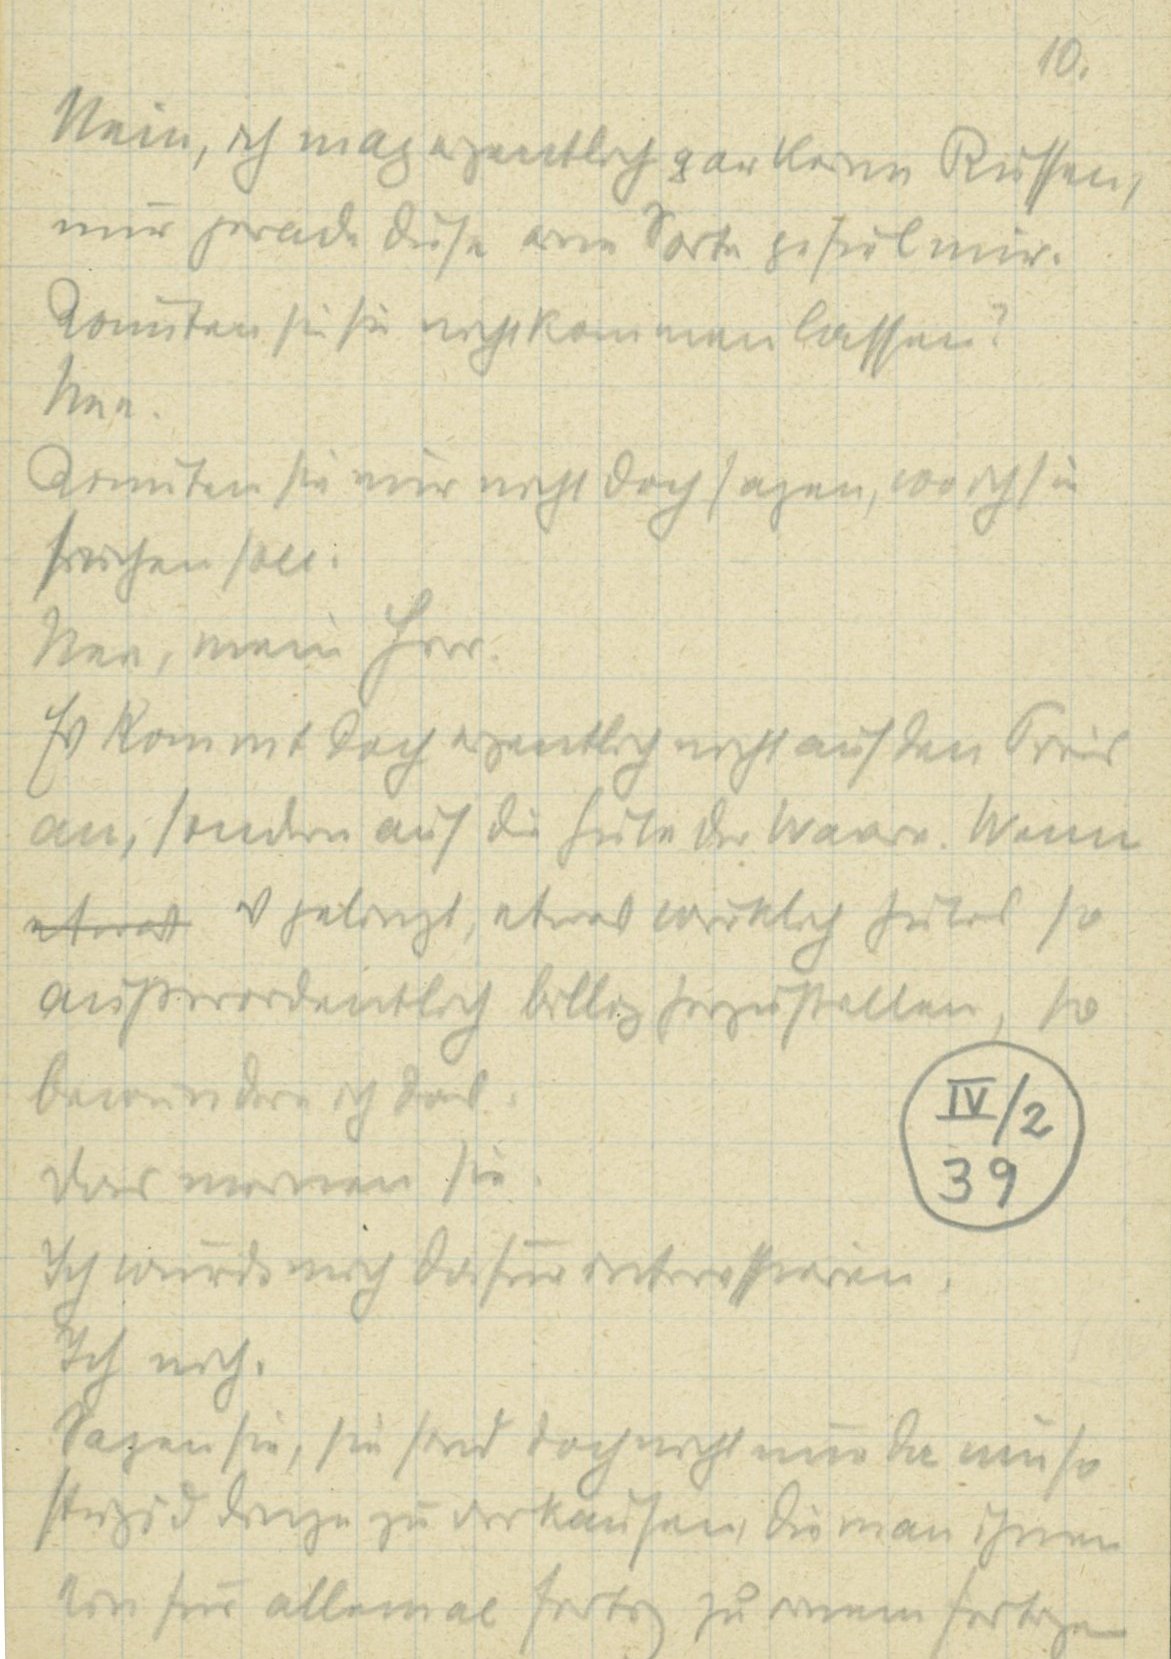 10.
Nein, ich mag eigentlich gar keine Russen,
nur gerade diese eine Sorte gefiel mir.
Könnten sie sie nicht kommen lassen?
Nee.
Könnten sie mir nicht doch sagen, wo ich sie
suchen soll.
Nee, mein Herr.
Es kommt doch eigentlich nicht auf den Preis
an, sondern auf die Güte der Waare. Wenn
etwas es gelingt, etwas wirklich gutes so
außerordentlich billig herzustellen, so
bewundere ich das.
das meinen sie.
Ich würde mich dafür interessieren.
Ich nich.
Sagen sie, sie sind doch nicht nur da um so
stupid dinge zu verkaufen, die man ihnen
ein für allemal fertig zu einem fertigen
IV/2
39